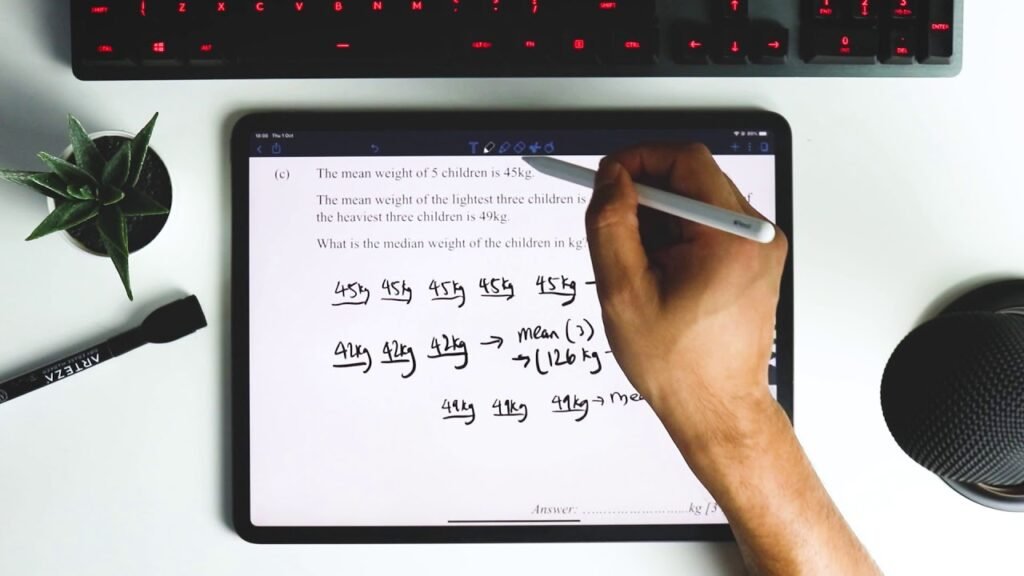 SHIFT Z X C V B N M SHIFT 1 2 3
END ENTER
CTRL ALT ALT GR FN CTRL 0
INS DEL
16:08 Thu 1 Oct
T
(c) The mean weight of 5 children is 45kg.
The mean weight of the lightest three children is
the heaviest three children is 49kg.
What is the median weight of the children in kg?
45kg 45kg 45kg 45kg 45kg
42kg 42kg 42kg → mean (3)
→ (126 kg
49kg 49kg 49kg → mea
ARTEZA
Answer: ........................kg [3